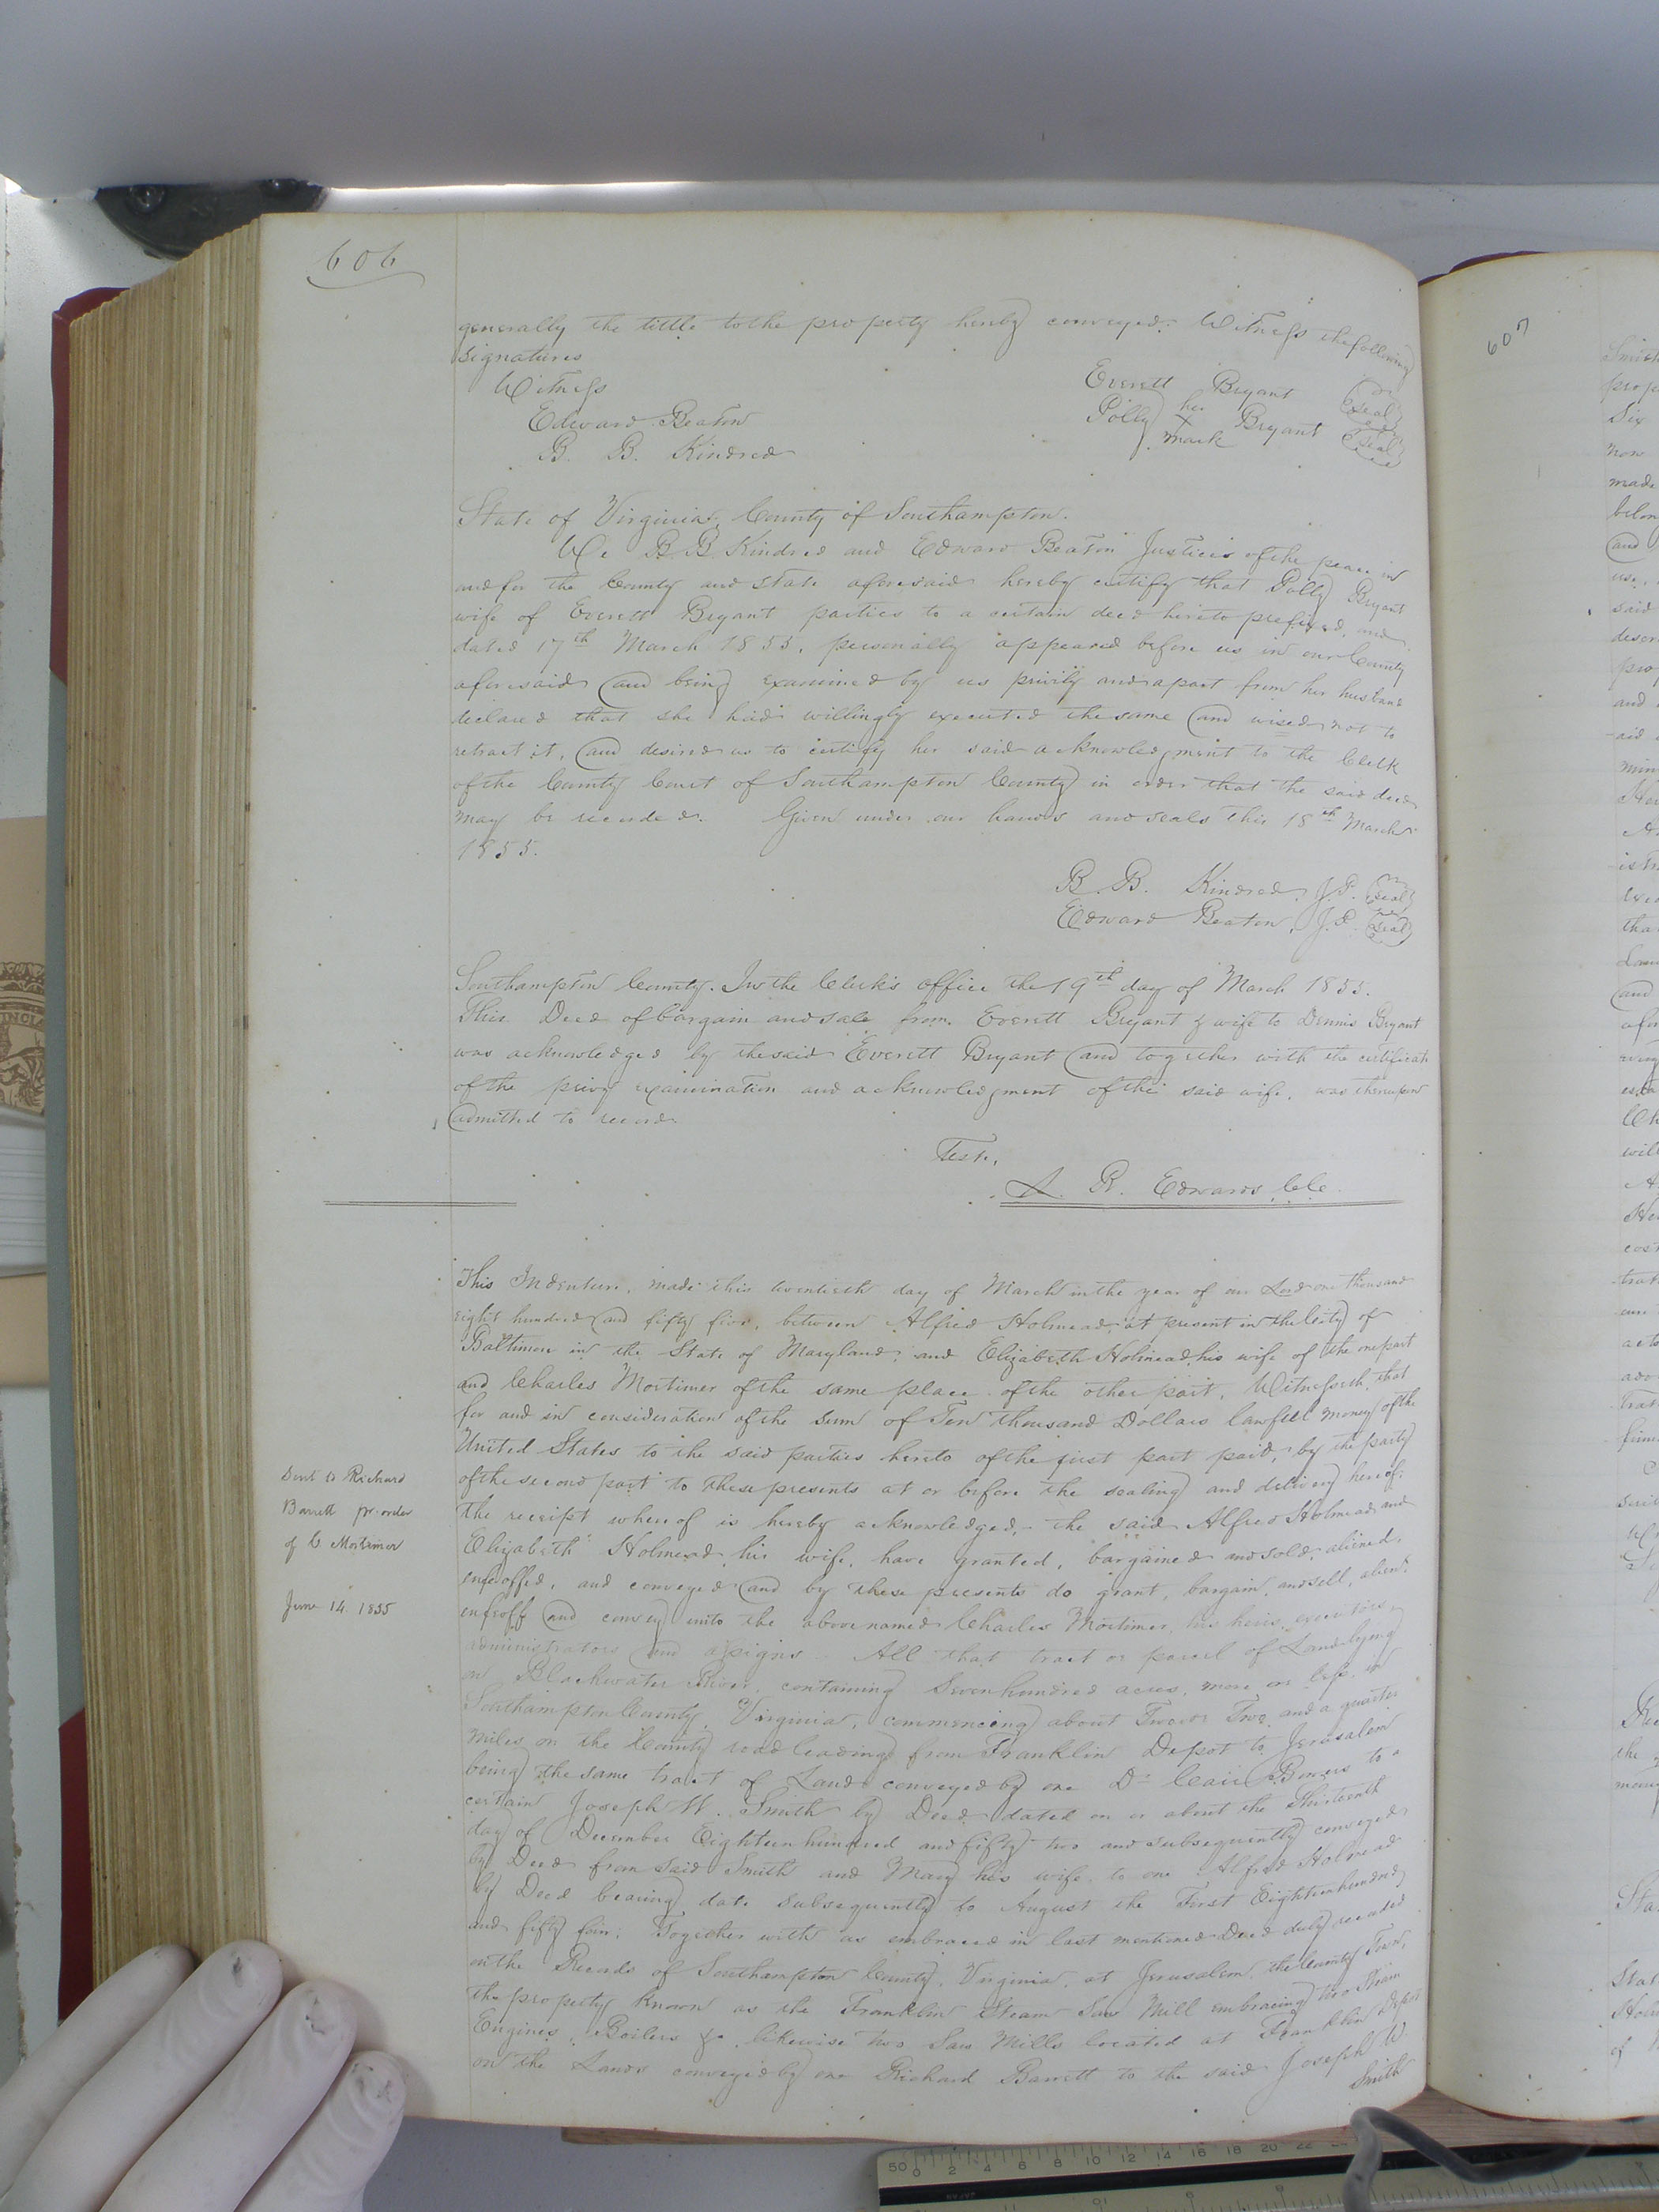 606
generally the tittle to the property hereby conveyed. Witness the following
signatures
Witness
Edward Beaton
B. B. Kindred
Everett Bryant seal
Polly her X mark Bryant seal
State of Virginia, County of Southampton.
We B B Kindred and Edward Beaton Justices of the peace in
and for the County and state aforesaid hereby certify that Polly Bryant
wife of Everett Bryant parties to a certain deed hereto prefixed, and
dated 17th March 1855, personally appeared before us in our County
aforesaid and being examined by us privily and apart from her husband
declared that she had willingly executed the same and wised not to
retract it, and desired us to certify her said acknowledgment to the Clerk
of the County Court of Southampton County in order that the said deed
may be recorded. Given under our hands and seals this 18th March
1855.
B. B. Kindred, J.P. seal
Edward Beaton, J.P. seal
Southampton County. In the Clerk's office the 19th day of March 1855.
This Deed of bargain and sale from Everett Bryant & wife to Dennis Bryant
was acknowledged by the said Everett Bryant and together with the certificate
of the privy examination and acknowledgment of the said wife, was thereupon
admitted to record.
Teste,
L. R. Edwards Clc.
This Indenture, made this twentieth day of March in the year of our Lord one thousand
eight hundred and fifty five, between Alfred Holmead, at present in the City of
Baltimore in the State of Maryland, and Elizabeth Holmead, his wife of the one part
and Charles Mortimer of the same place of the other part, Witnesseth, that
for and in consideration of the sum of Ten thousand Dollars lawfull money of the
United States to the said parties hereto of the first part paid, by the party
of the second part to these presents at or before the sealing and delivery hereof:
the receipt whereof is hereby acknowledged, the said Alfred Holmead and
Elizabeth Holmead his wife, have granted, bargained and sold, aliened,
enfeoffed, and conveyed and by these presents do grant, bargain, and sell, alien,
enfeoff and convey unto the above named Charles Mortimer, his heirs, executors,
administrators and assigns. All that tract or parcel of Land lying
on Blackwater River, containing Seven hundred acres, more or less in
Southampton County, Virginia, commencing about Two or Two and a quarter
miles on the County road leading from Franklin Depot to Jerusalem
being the same tract of Land conveyed by one Dr Bowers to a
certain Joseph W. Smith by Deed dated on or about the Thirteenth
day of December Eighteen hundred and fifty two and subsequently conveyed
by Deed from said Smith and Mary his wife to one Alfred Holmead
by Deed bearing date subsequently to August the First Eighteen hundred
and fifty four; Together with as embraced in last mentioned Deed duly recorded
on the Records of Southampton County, Virginia, at Jerusalem, the County Town,
the property known as the Franklin Steam Saw Mill embracing two Steam
Engines, Boilers &c. likewise two Saw Mills located at Franklin Depot
on the Lands conveyed by one Richard Barrett to the said Joseph W.
Smith
Sent to Richard
Barrett pr order
of C. Mortimer
June 14. 1855
607